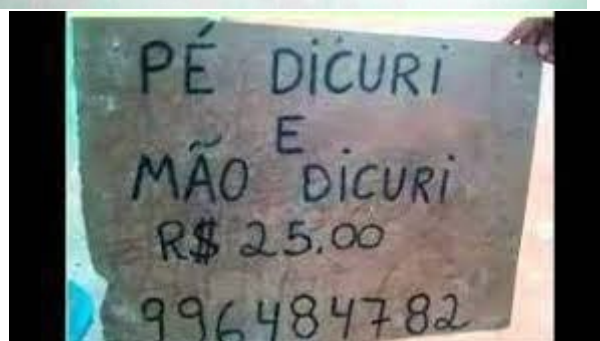 PÉ DICURI
E
MÃO DICURI
R$ 25.00
996484782